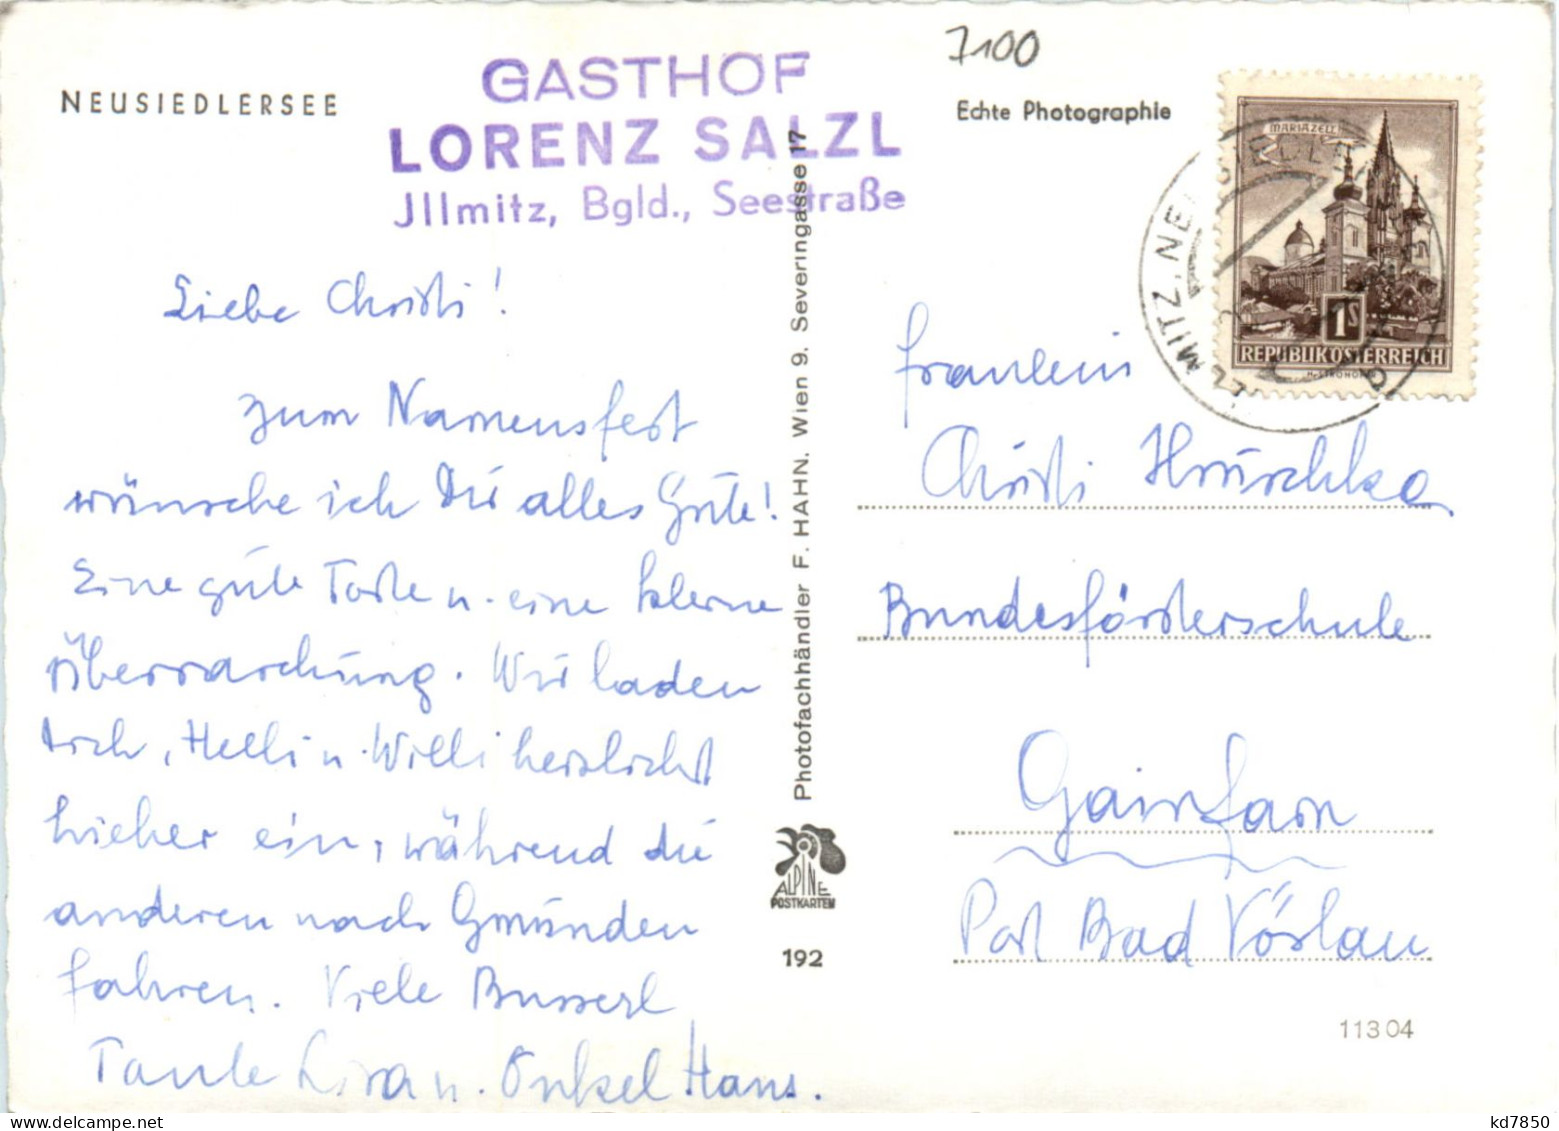 7100
NEUSIEDLERSEE
GASTHOF
LORENZ SALZL
Jllmitz, Bgld., Seestraße
Echte Photographie
MARIAZELL
1S
REPUBLIK ÖSTERREICH
Liebe Christi!
zum Namensfest
wünsche ich Dir alles Gute!
Eine gute Torte u. eine kleine
Überraschung. Wir laden
Dich, Helli u. Willi herzlichst
hieher ein, während die
anderen nach Gmünden
fahren. Viele Busserl
Tante u. Onkel Hans.
Photofachhändler F. HAHN. Wien 9. Severingasse 17
ALPINE
POSTKARTEN
192
Fräulein
Christi Hruschka
Bundesförsterschule
Gainfarn
Post Bad Vöslau
11304
kd7850